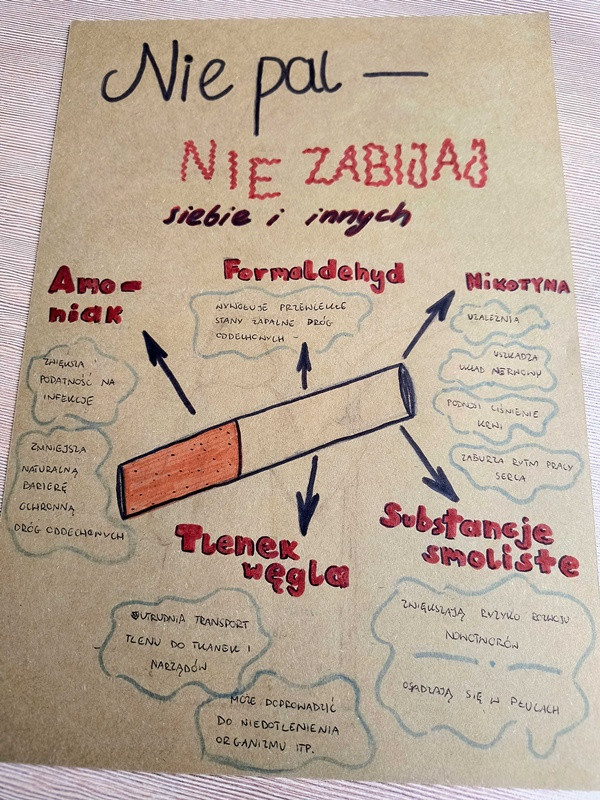 Nie pal —
NIE ZABIJAJ
siebie i innych
Amo-
niak
ZWIĘKSZA
PODATNOŚĆ NA
INFEKCJE
ZMNIEJSZA
NATURALNĄ
BARIERĘ
OCHRONNĄ
DRÓG ODDECHOWYCH
Formaldehyd
WYWOŁUJE PRZEWLEKŁE
STANY ZAPALNE DRÓG
ODDECHOWYCH -
NIKOTYNA
UZALEŻNIA
USZKADZA
UKŁAD NERWOWY
PODNOSI CIŚNIENIE
KRWI
ZABURZA RYTM PRACY
SERCA
Tlenek
węgla
UTRUDNIA TRANSPORT
TLENU DO TKANEK I
NARZĄDÓW
MOŻE DOPROWADZIĆ
DO NIEDOTLENIENIA
ORGANIZMU ITP.
Substancje
smoliste
ZWIĘKSZAJĄ RYZYKO ROZWOJU
NOWOTWORÓW
OSADZAJĄ SIĘ W PŁUCACH